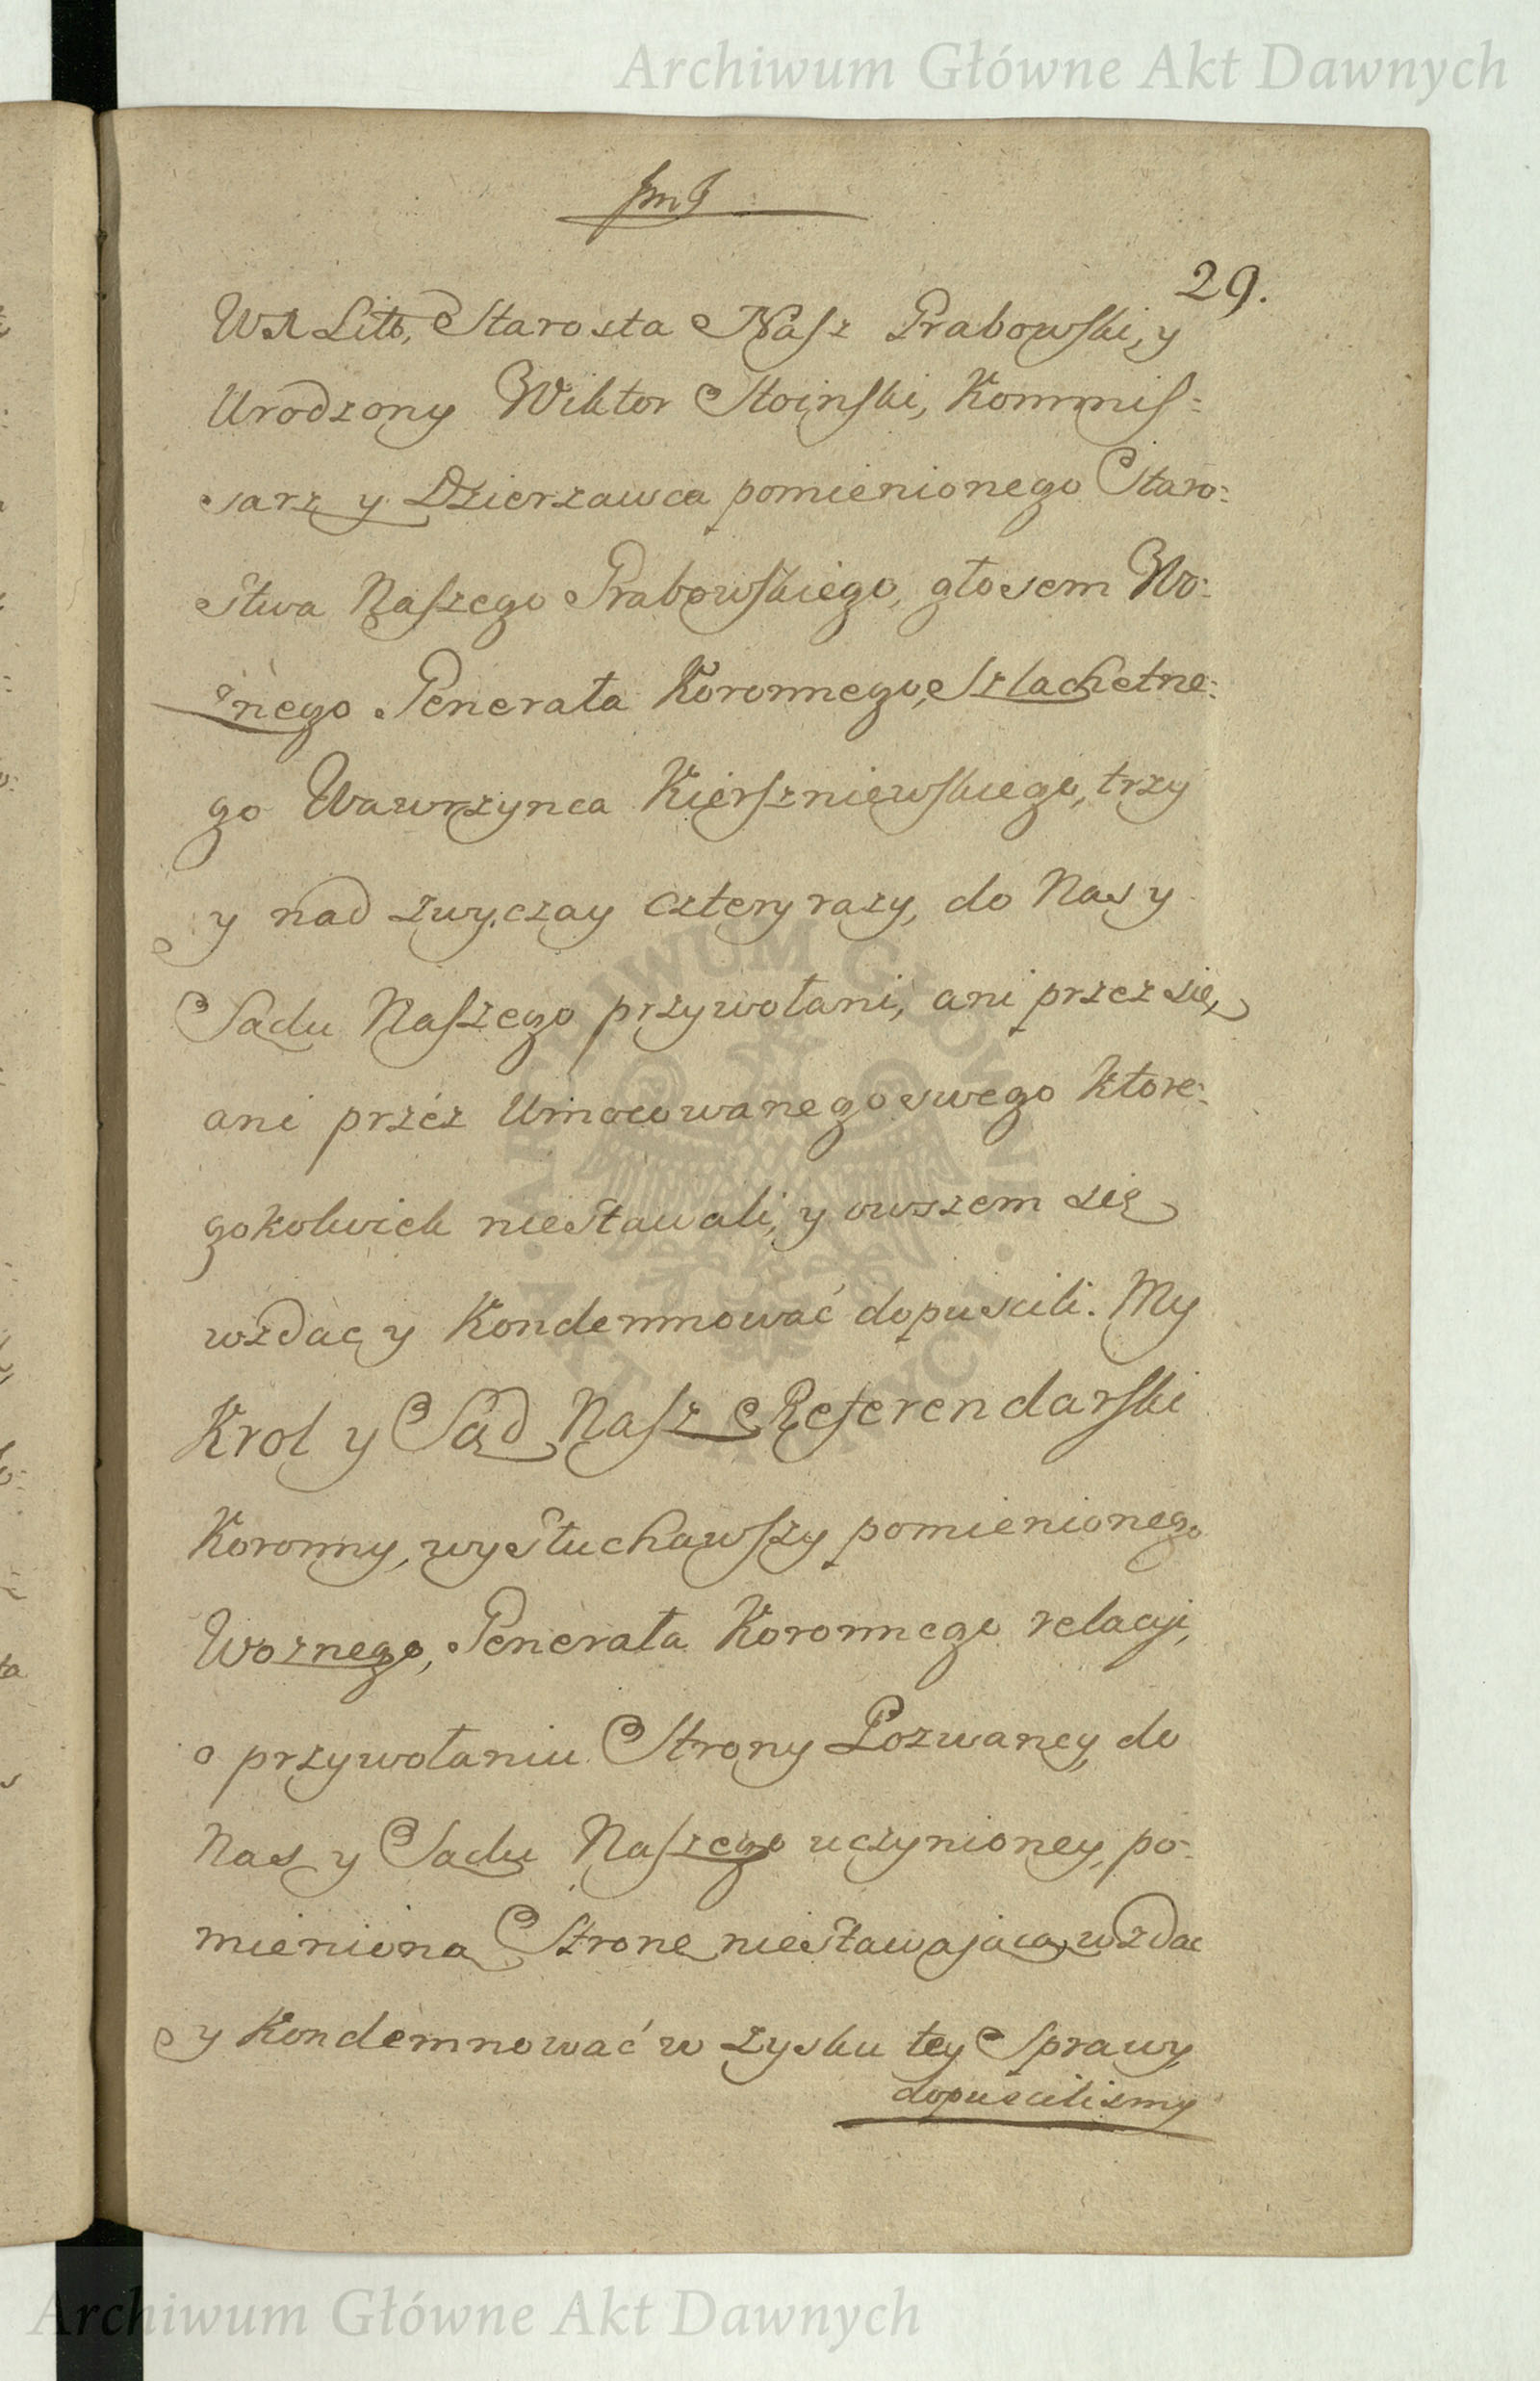 Archiwum Główne Akt Dawnych
29.
WX Litt, Starosta Nasz Grabowski, y
Urodzony Wiktor Stoinski, Kommis:
sarz y Dzierzawca pomienionego Staro:
stwa Naszego Grabowskiego, głosem Wo:
źnego Generała Koronnego, Szlachetne:
go Wawrzynca Kierszniewskiego, trzy
y nad zwyczay cztery razy, do Nas y
Sądu Naszego przywołani, ani przez się,
ani przez Umocowanego swego ktore:
gokolwiek niestawali, y owszem się
wzdać y Kondemnować dopuscili. My
Krol y Sąd Nasz Referendarski
Koronny, wysłuchawszy pomienionego
Woznego, Generała Koronnego relacyi,
o przywołaniu Strony Pozwaney, do
Nas y Sądu Naszego uczynioney, po:
mienioną Stronę niestawaiącą, wzdać
y Kondemnować w zysku tey Sprawy,
dopuscilismy
ARCHIWUM GŁÓWNE · AKT DAWNYCH ·
Archiwum Główne Akt Dawnych